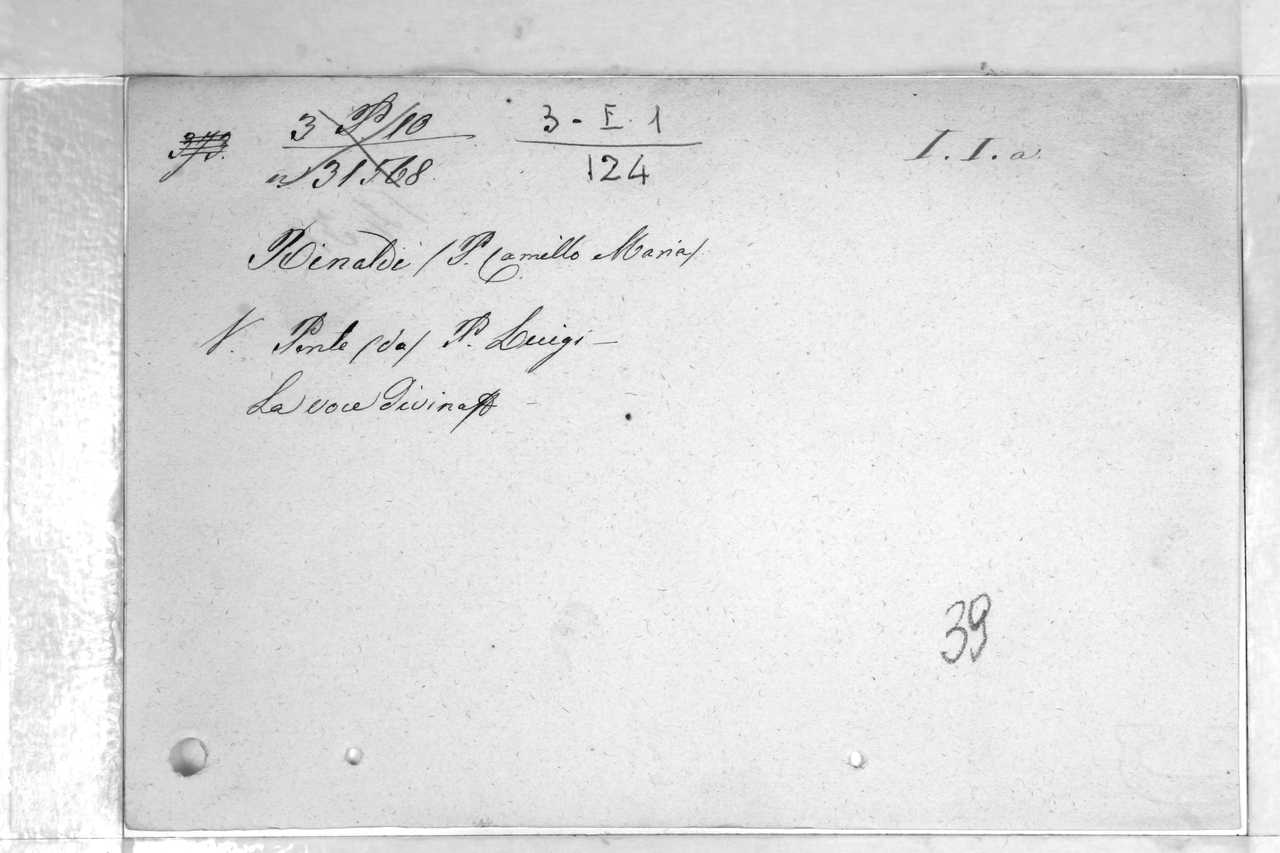 3 P/10 3 - E. 1 I. I. a
n 31568 124
Rinaldi (P. Camillo Maria)
V. Ponte (da) P. Luigi —
La voce divina
39